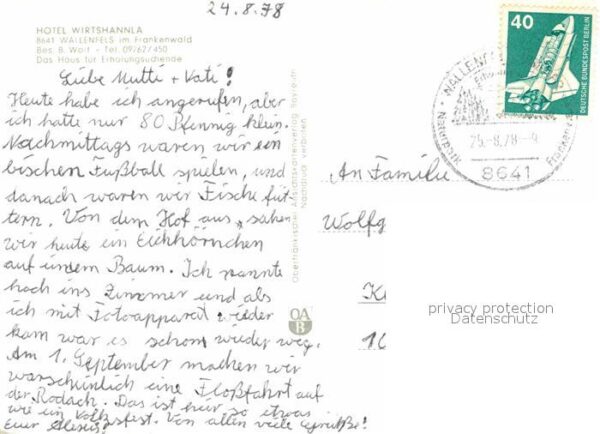 24.8.78
HOTEL WIRTSHANNLA
8641 WALLENFELS im Frankenwald
Bes. B. Wolf - Tel. 09/62/450
Das Haus für Erholungsuchende
Liebe Mutti + Vati!
Heute habe ich angerufen, aber
ich hatte nur 80 Pfennig klein.
Nachmittags waren wir ein
bischen Fußball spielen, und
danach waren wir Fische füt-
tern. Von dem Hof aus, sahen
wir heute ein Eichhörnchen
auf unsem Baum. Ich rannte
hoch ins Zimmer und als
ich mit Fotoapparat wieder
kam war es schon wieder weg.
Am 1. September machen wir
warscheinlich eine Floßfahrt auf
der Rodach. Das ist hier so etwas
wie ein Volksfest. Von allen viele Grüße!
Euer Alexis!
Oberfränkischer Ansichtskartenverlag Bayreuth
Nachdruck verboten
OA
B
40
DEUTSCHE BUNDESPOST BERLIN
WALLENF
Naturpark
25.-8.78-9
Frankenw
8641
An Familie
Wolfg
K
1
privacy protection
Datenschutz